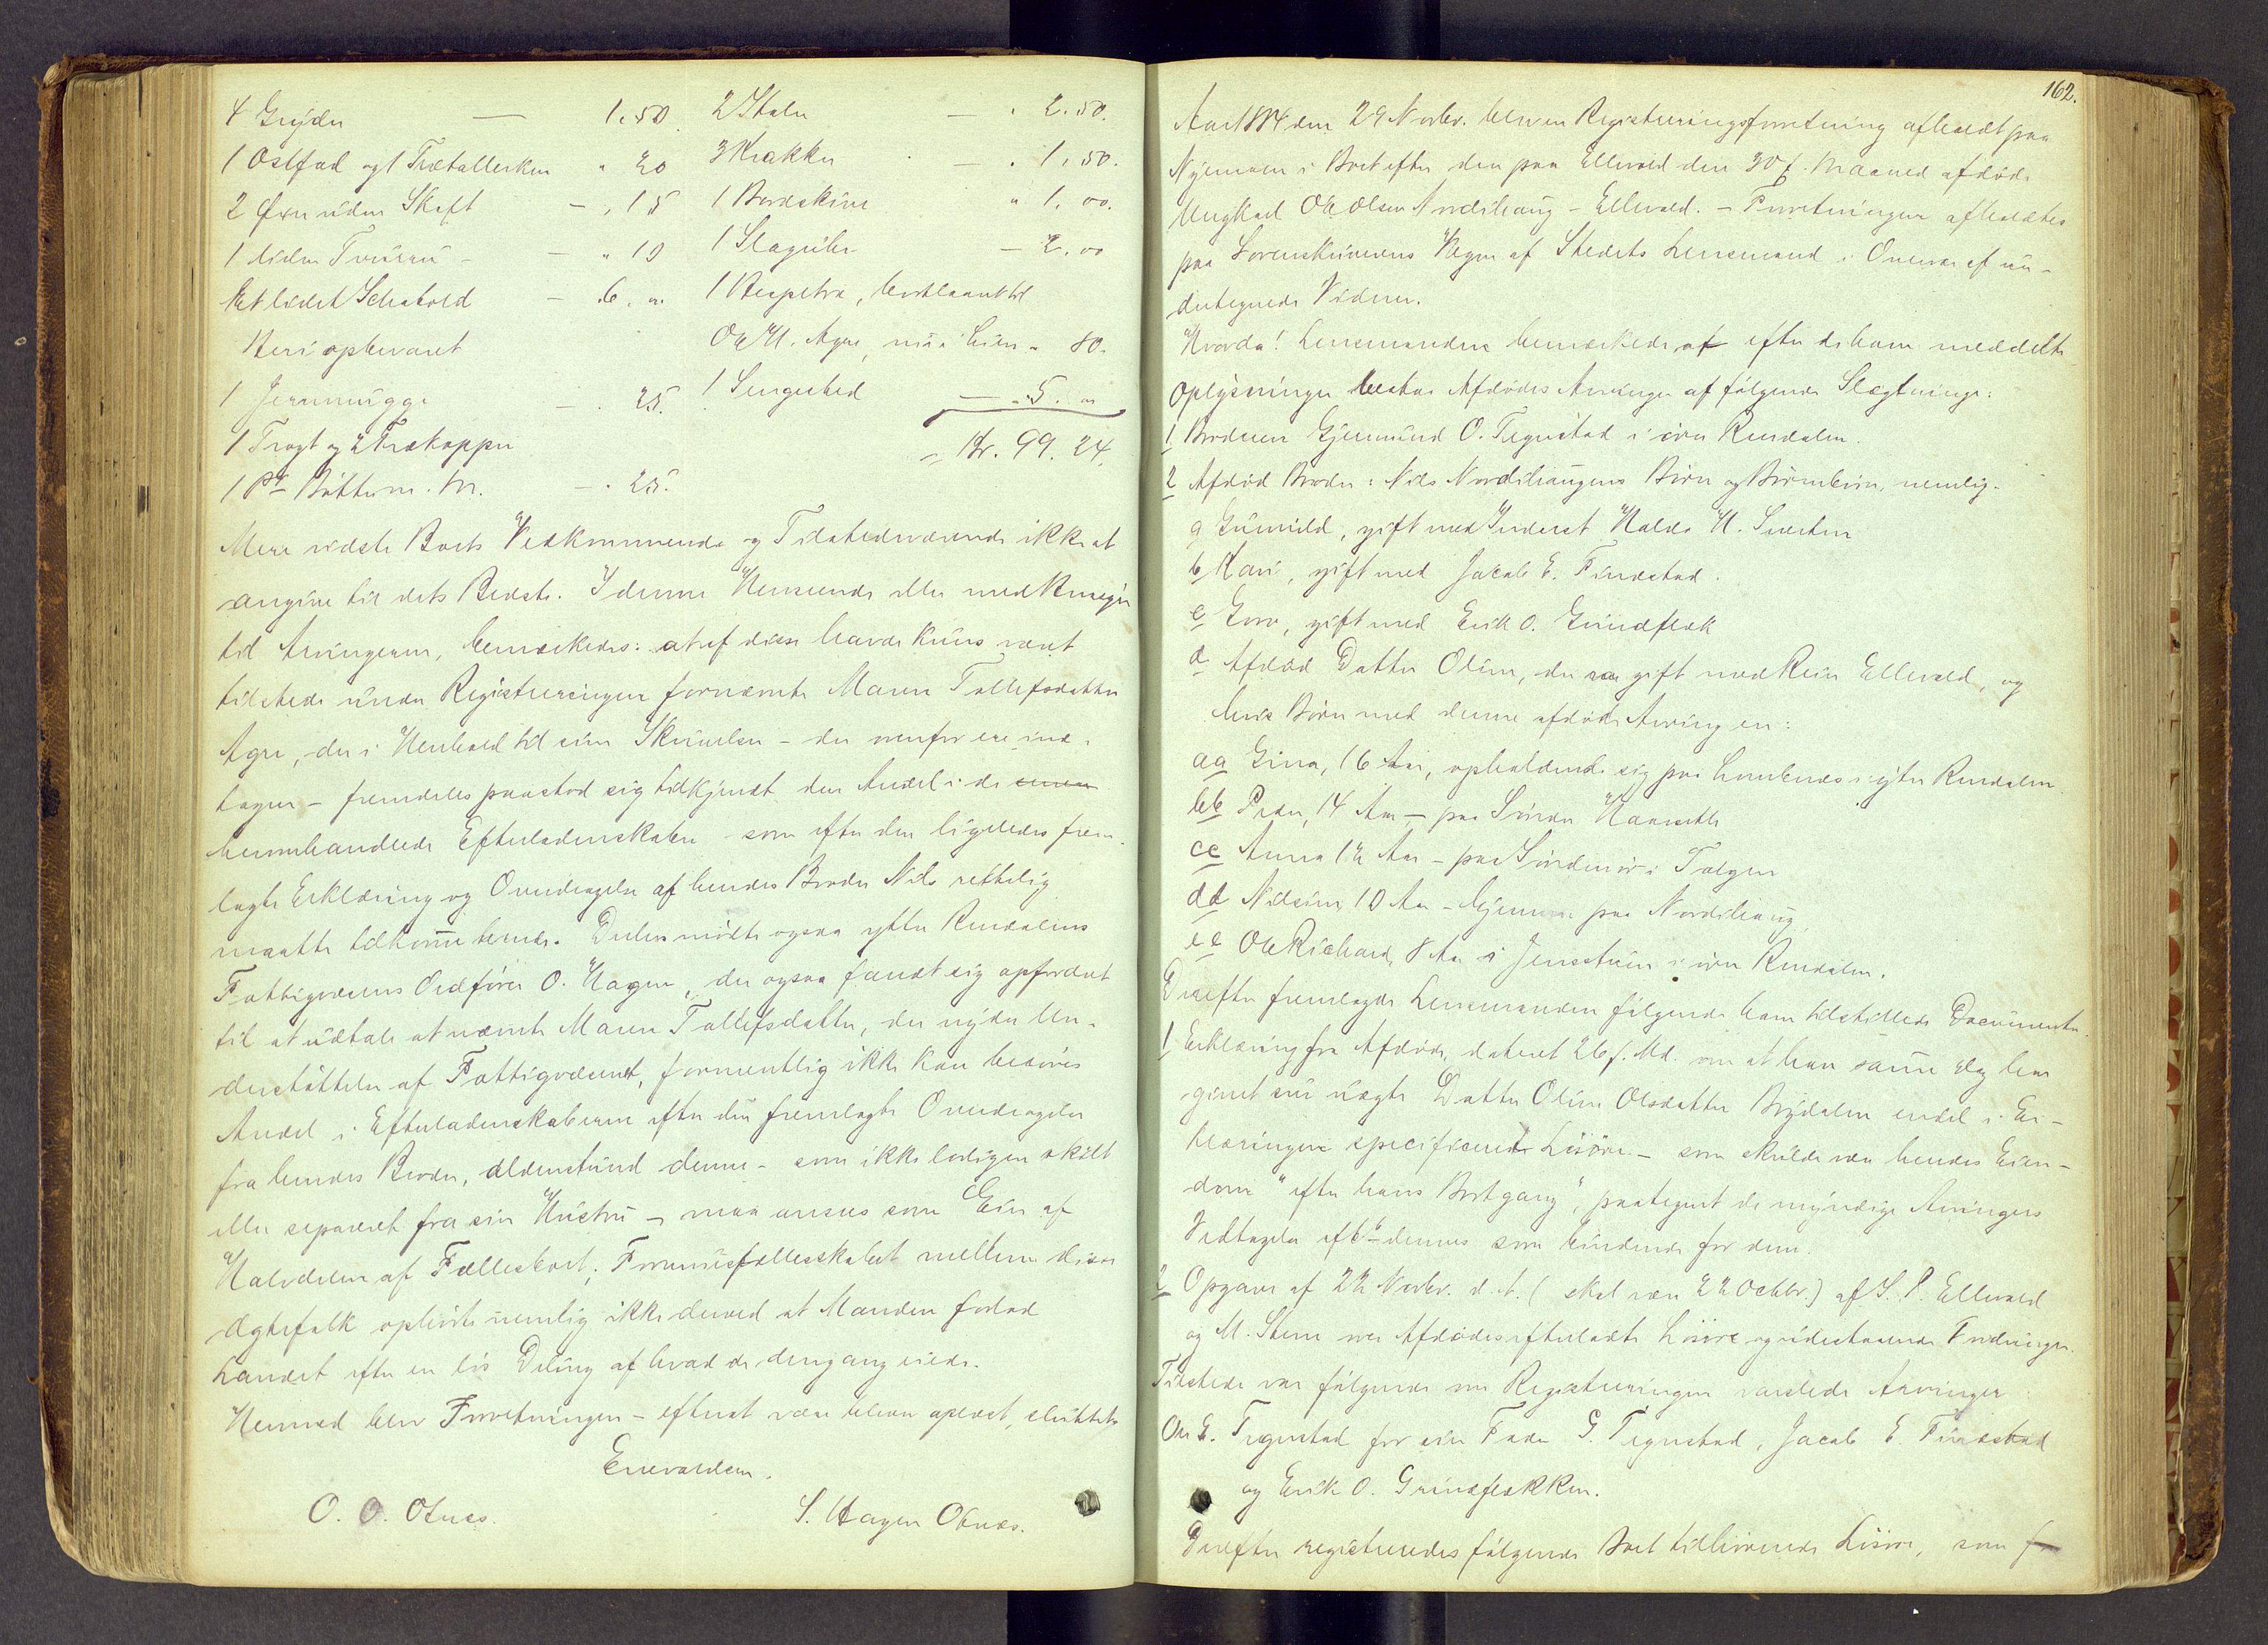 4 Gryder — 1.50
1 Ostfad og 1 Trætallerken " 20
2 Øxer uden Skaft — " 15
1 liden Tvære — " 10
Et lidet Schatold — 6. "
Heri opbevaret
1 Jernmugge — " 25.
1 Tragt og 2 Trækopper
1 Pt Bøtter m. M. — " 25.
2 Stole — " 2.50.
3 Krakker — " 1.50.
1 Bordskive " 1.00.
1 Slaguhr — 2.00
1 Respetræ, bortlaant til
Ole H. Agre, nu i live " 80.
1 Sengested — 5. "
= Kr. 99. 24.
Mere vidste Boets Vedkommende og Tilstedeværende ikke at
angive til dets Bedste. I denne Henseende eller med Hensyn
til Arvingerne, bemærkedes: at af disse havde kuns været
tilstede under Registreringen fornævnte Maren Tollefsdatter
Agre, der i Henhold til sin Skrivelse – der ovenfor ere ind-
tagen – fremdeles paastod sig tilkjendt den Andel i de
heromhandlede Efterladenskaber – som efter den ligeledes frem-
lagte Erklæring og Overdragelse af hendes Broder Nils rettelig
maatte tilkomme hende. Derhos mødte ogsaa yttre Rendalens
Fattigvæsens Ordfører O. Hagen, der ogsaa fandt sig opfordret
til at udtale at nævnte Maren Tollefsdatter, der nyder Un-
derstøttelse af Fattigvæsenet, formentlig ikke kan berøves
Andel i Efterladenskaberne efter den fremlagte Overdragelse
fra hendes Broder, aldenstund denne – som ikke lovligen skilt
eller separeret fra sin Hustru – maa ansees som Eier af
Halvdelen af Fællesboet; Formuesfællesskabet mellem disse
Ægtefolk ophørte nemlig ikke derved at Manden forlod
Landet efter en løs Deling af hvad de dengang eiede.
Hermed blev Forretningen – efterat være bleven oplæst, sluttet.
Enevoldsen.
O. O. Otnes. S. Hagen Otnes.
162.
Aar 1884 den 29 Novbr. blev en Registreringsforretning afholdt paa
Nymoen i Boet efter den paa Ellevold den 30 f. Maaned afdøde
Ungkarl Ole Olsen Nordihaug – Ellevold. – Forretningen afholdtes
paa Sorenskriverens Vegne af Stedets Lensmand i Overvær af un-
dertegnede Vidner.
Hvorda! Lensmanden bemærkede, at efter de ham meddelte
Oplysninger bestaar Afdødes Arvinger af følgende Slægtninge:
1 Broderen Gjermund O. Tegnstad i øvre Rendalen.
2 Afdød Broder: Nils Nordihaugens Børn og Børnebørn, nemlig.
a Gunnild, gift med Inderst Haldo H. Sverten
b Kari, gift med Jacob E. Finstad.
c Goro, gift med Erik O. Grindflek
d Afdød Datter Oline, der var gift med Rein Ellevold, og
hvis Børn med denne afdøde Arving er:
aa Gina, 16 Aar, opholdende sig paa Lombnæs i ytre Rendalen.
bb Peder, 14 Aar – paa Søndre Haarseth
cc Anna 12 Aar – paa Søndmør i Tolgen
dd Nilsine 10 Aar – hjemme paa Nordihaug
ee Ole Richard, 8 Aar i Jensstuen i øvre Rendalen.
Derefter fremlagde Lensmanden følgende ham tilstillede Documenter.
1 Erklæring fra Afdøde, dateret 26 f. Md. om at han samme Dag har
givet sin uægte Datter Oline Olsdatter Brydalen endel i Er-
klæringen specificerede Løsøre – som skulde være hendes Eien-
dom "efter hans Bortgang", paategnet de myndige Arvingers
Vedtagelse af dennes som bindende for dem.
2 Opgave af 22 Novbr. d. A. (skal være 22 Octbr.) af S. P. Ellevold
og M. Steen over Afdødes efterladte Løsøre og udestaaende Fordringer.
Tilstede var følgende om Registreringen varslede Arvinger
Ole G. Tegnstad for sin Fader G. Tegnstad, Jacob E. Finstad
og Erik O. Grindflekken.
Derefter registreredes følgende Boet tilhørende Løsøre, som